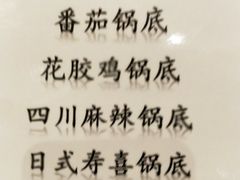 番茄锅底
花胶鸡锅底
四川麻辣锅底
日式寿喜锅底